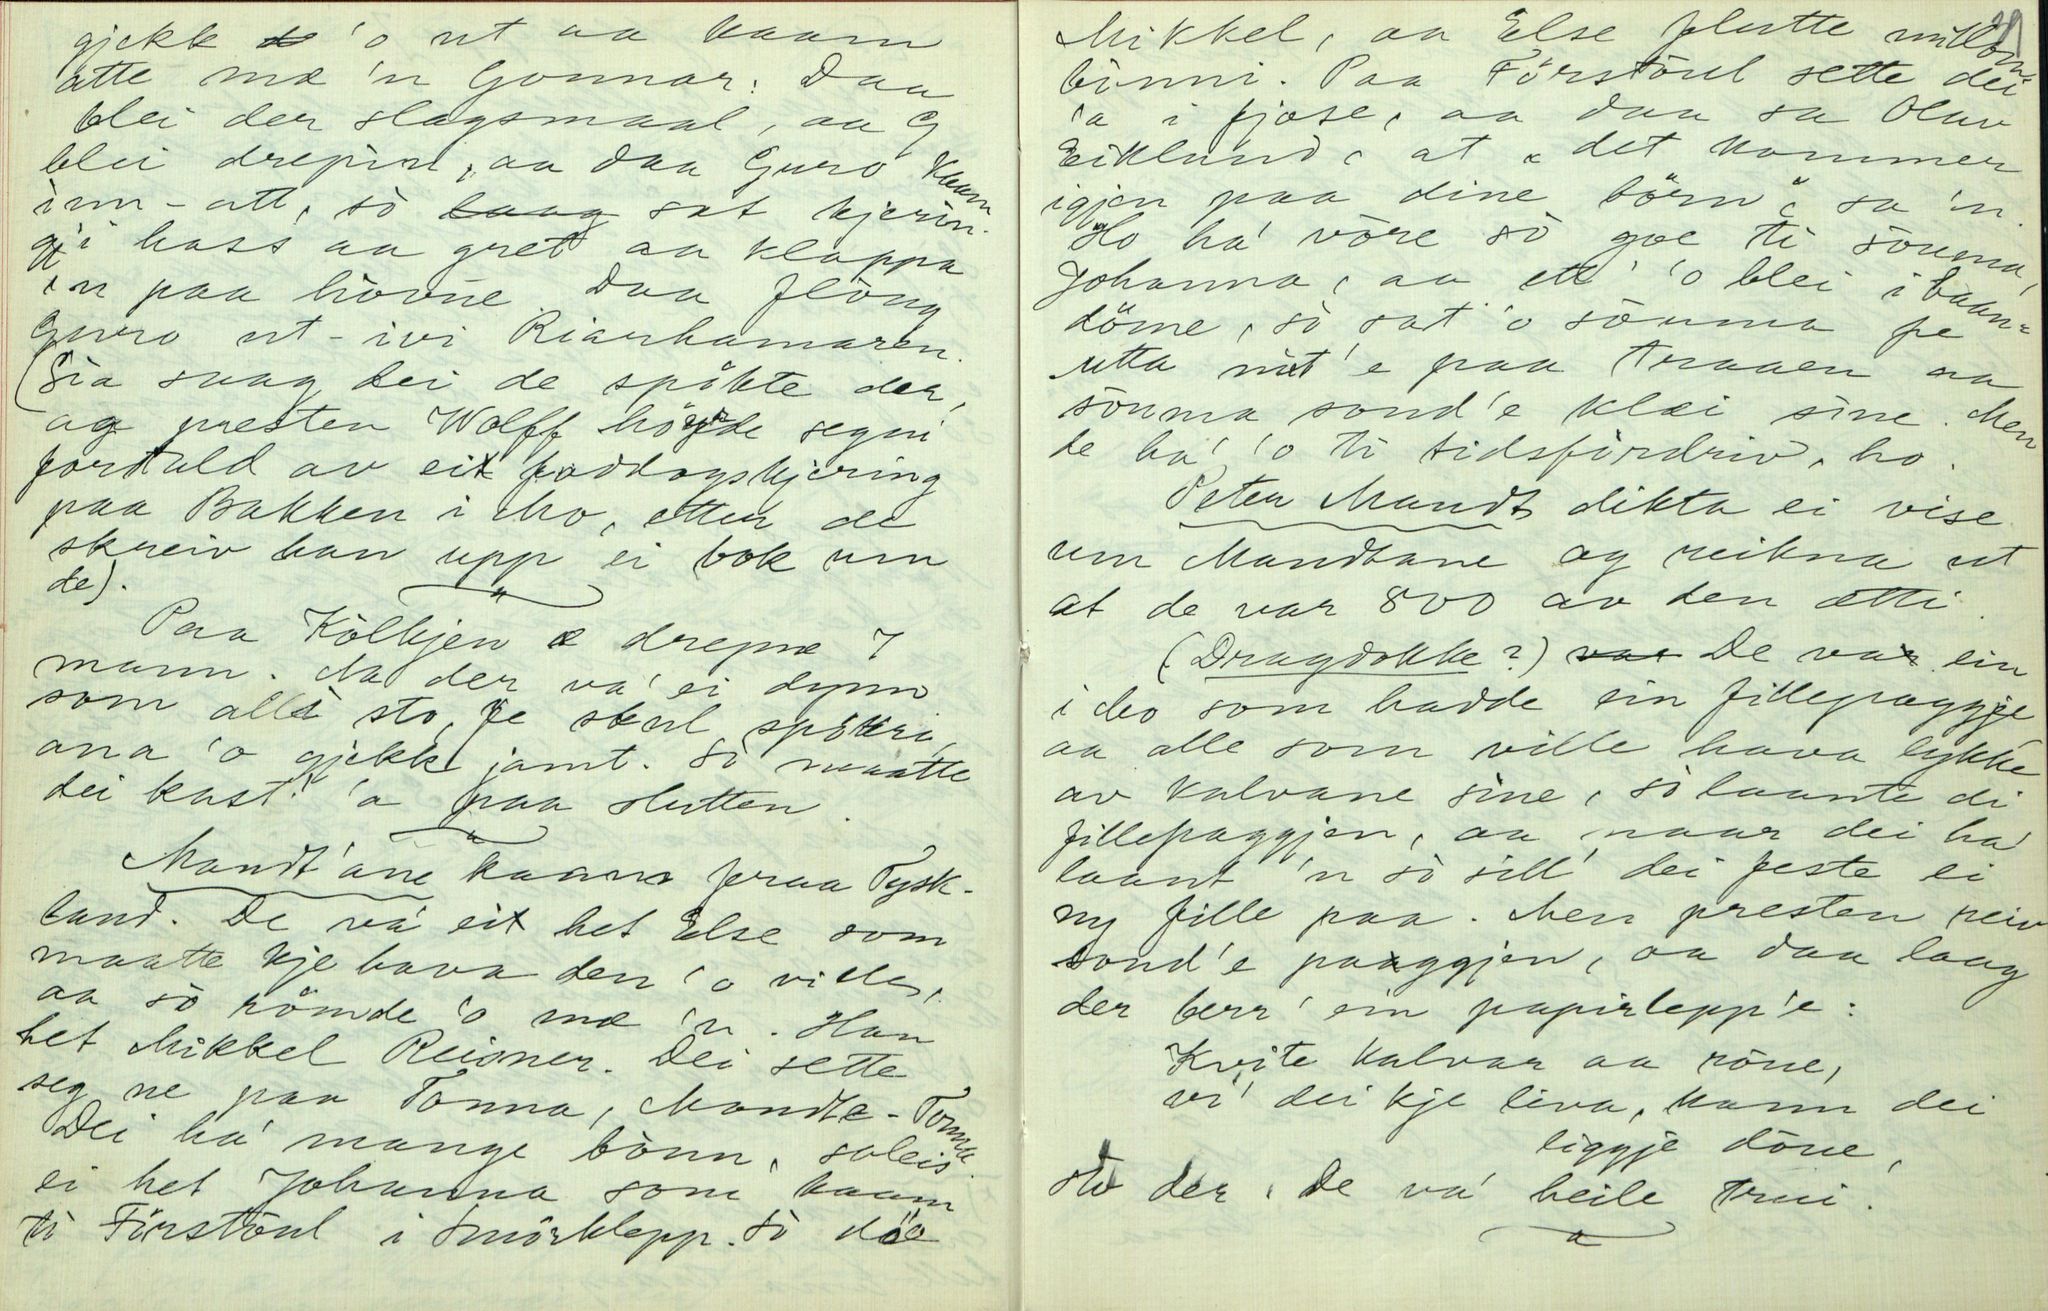 gjekk de 'o ut aa kaam
atte mæ 'n Gonnar. Daa
blei der slagsmaal, aa G
blei drepin, aa daa Guro kaam
inn-att, so laag sat kjerin-
gji hass aa gret aa klappa
'n paa hovue. Daa flöug
Guro ut-ivi Riarhamaren.
(Sia saag dei de spökte der,
ag presten Wolff höyrde segni
fortald av eit foddogskjering
paa Bakken i Mo, etter de
skreiv han upp ei bok um
de).
Paa Kölkjen æ drepne 7
mann. Aa der va' ei dynn
som alli sto, fe skul spökri,
ana 'o gjekk jamt. So maatte
dei kast' 'a paa slutten.
Mandt'ane kaam fraa Tysk-
land. De va' eit het Else som
maatte kje hava den 'o ville,
aa so römde 'o mæ 'n. Han
het Mikkel Reisner. Dei sette
seg ne paa Tonna, Mandte-Tonna.
Dei ha' mange bonn, soleis
ei het Johanna som kaam
ti Förstöul i Smörklepp. So döe
29
Mikkel, aa Else flutte millom
binni. Paa Förstöul sette dei
'a i fjose, aa daa sa Olav
Eiklund, at "det kommer
igjen paa dine börn" sa 'n.
Ho ha' vore so goe ti souma,
Johanna, aa ett' 'o blei i baan-
döme, so sat 'o souma fe
utta nit'e paa traaen aa
souma sond'e klæi sine. Men
de ha' 'o ti tidsfördriv, ho.
Peter Mandt dikta ei vise
um Mandtane ag reikna ut
at de var 800 av den ætti.
(Dragdokke?) var De var ein
i Mo som hadde ein fillepaggje
aa alle som ville hava lykke
av kalvane sine, so laante di
fillepaggjen, aa naar dei ha'
laant 'n so sill' dei feste ei
ny fille paa. Men presten reiv
sond'e paaggjen, aa daa laag
der berr' ein papirlepp'e:
Kvite kalvar aa röue,
vi' dei kje liva, kann dei
liggje döue,
sto der. De va' heile trui.